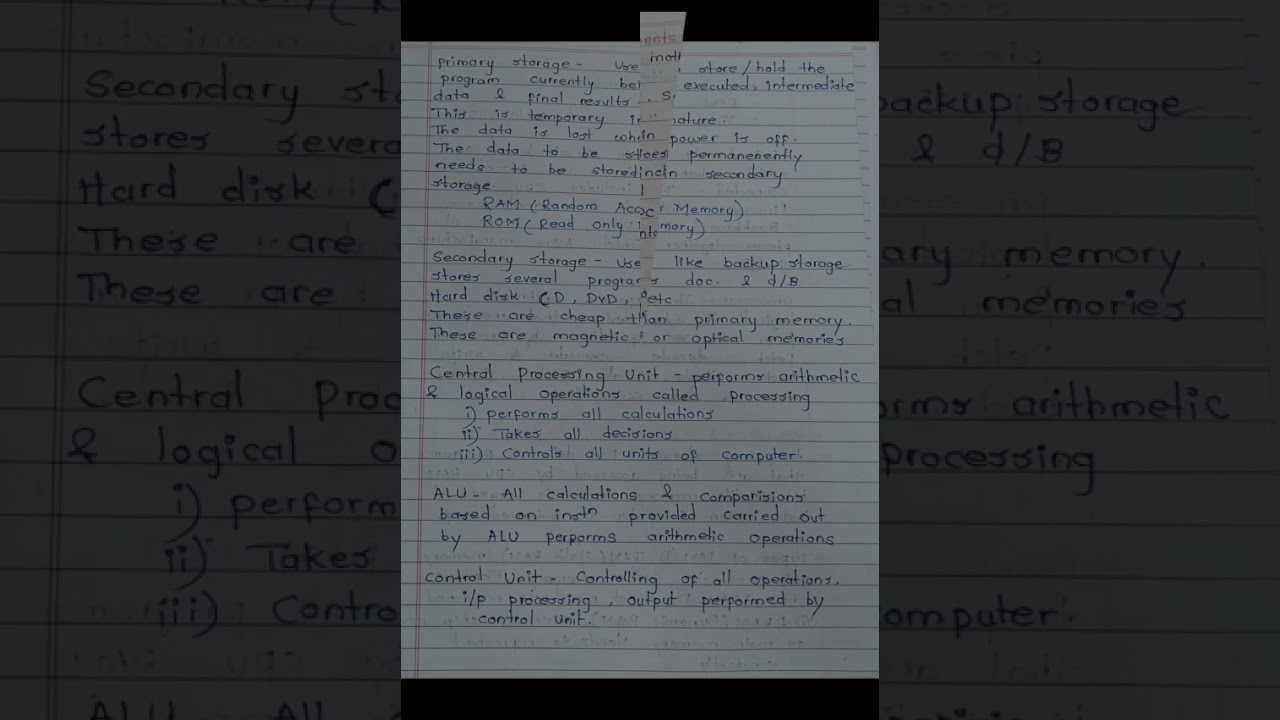 primary storage - Use store/hold the
program currently be executed, intermediate
data & final results
This is temporary in nature.
The data is lost when power is off.
The data to be permanehently
needs to be stored in secondary
storage.
RAM (Random Memory)
ROM (Read only
Secondary storage - Use like backup storage
stores several programs doc. & d/B
Hard disk CD, DVD, etc
These are cheap than primary memory.
These are magnetic or optical memories
Central Processing Unit - performs arithmetic
& logical operations called processing
i) performs all calculations
ii) Takes all decisions
iii) Controls all units of computer.
ALU - All calculations & comparisions
based on instn provided carried out
by ALU perporms arithmetic operations
Control Unit - Controlling of all operations,
i/p processing, output performed by
control unit.